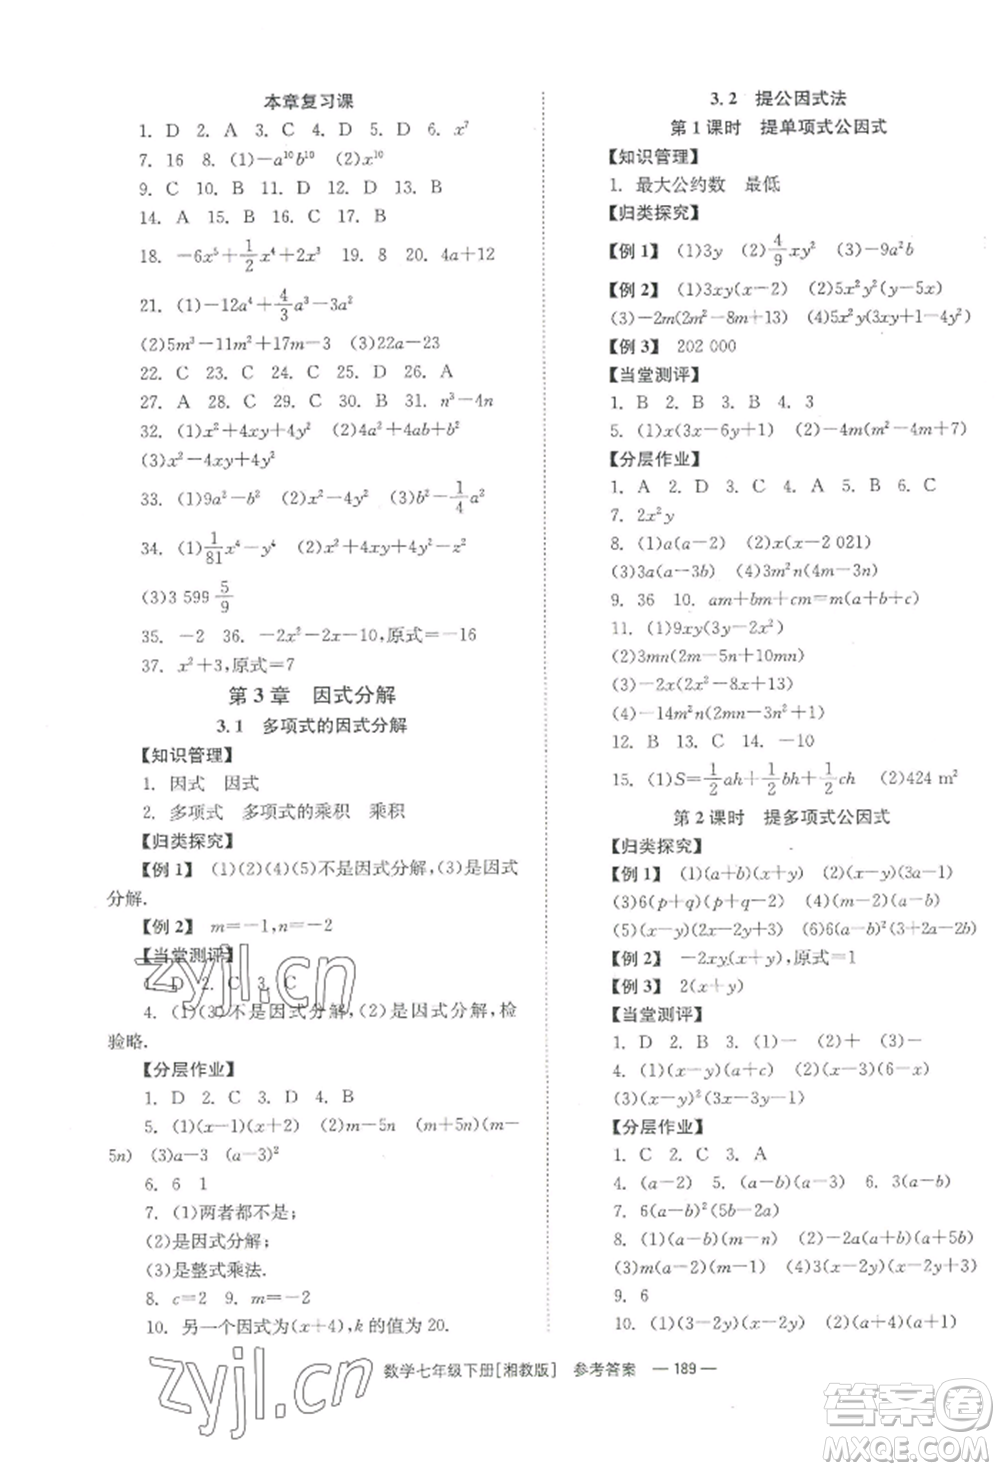 本章复习课
1. D 2. A 3. C 4. D 5. D 6. x⁷
7. 16 8. (1)−a¹⁰b¹⁰ (2)x¹⁰
9. C 10. B 11. D 12. D 13. B
14. A 15. B 16. C 17. B
18. −6x⁵+1/2x⁴+2x³ 19. 8 20. 4a+12
21. (1)−12a⁴+4/3a³−3a²
(2)5m³−11m²+11m−3 (3)22a−23
22. C 23. C 24. D 25. C 26. D
27. A 28. C 29. C 30. B 31. n³−4n
32. (1)x²+4xy+4y² (2)4a²+4ab+b²
(3)x²−4xy+4y²
33. (1)9a²−b² (2)x²−4y² (3)b²−1/4a²
34. (1)1/81x⁴−y⁴ (2)x²+4xy+4y²−z²
(3)3 599 5/9
35. −2 36. −2x²−2x−10,原式=−16
37. x²+3,原式=7
第 3 章 因式分解
3.1 多项式的因式分解
【知识管理】
1. 因式 因式
2. 多项式 多项式的乘积 乘积
【归类探究】
【例 1】 (1)(2)(4)(5)不是因式分解,(3)是因式
分解.
【例 2】 m=−1,n=−2
【当堂测评】
1. D 2. C 3. C
4. (1)(3)不是因式分解,(2)是因式分解,检
验略.
【分层作业】
1. D 2. C 3. D 4. B
5. (1)(x−1)(x+2) (2)m−5n (m+5n)(m−
5n) (3)a−3 (a−3)²
6. 6 1
7. (1)两者都不是;
(2)是因式分解;
(3)是整式乘法.
8. c=2 9. m=−2
10. 另一个因式为(x+4),k 的值为 20.
3.2 提公因式法
第 1 课时 提单项式公因式
【知识管理】
1. 最大公约数 最低
【归类探究】
【例 1】 (1)3y (2)4/9xy² (3)−9a²b
【例 2】 (1)3xy(x−2) (2)5x²y²(y−5x)
(3)−2m(2m²−8m+13) (4)5x²y(3xy+1−4y²)
【例 3】 202 000
【当堂测评】
1. B 2. B 3. B 4. 3
5. (1)x(3x−6y+1) (2)−4m(m²−4m+7)
【分层作业】
1. A 2. D 3. C 4. A 5. B 6. C
7. 2x²y
8. (1)a(a−2) (2)x(x−2 021)
(3)3a(a−3b) (4)3m²n(4m−n)
9. 36 10. am+bm+cm=m(a+b+c)
11. (1)9xy(3y−2x²)
(2)3mn(2m−5n+10mn)
(3)−2x(2x²−8x+13)
(4)−14m²n(2mn−3n²+1)
12. B 13. C 14. −10
15. (1)S=1/2ah+1/2bh+1/2ch (2)424 m²
第 2 课时 提多项式公因式
【归类探究】
【例 1】 (1)(a+b)(x+y) (2)(x−y)(3a−1)
(3)6(p+q)(p+q−2) (4)(m−2)(a−b)
(5)(x−2y)(2x−2y+3) (6)6(a−b)²(3−2a+2b)
【例 2】 −2xy(x+y),原式=1
【例 3】 2(x+y)
【当堂测评】
1. D 2. B 3. (1)− (2)+ (3)−
4. (1)(x−y)(a+c) (2)(x−3)(6−x)
(3)(x−y)²(3x−3y−1)
【分层作业】
1. C 2. C 3. A
4. (a−2) 5. (x−y)(a−b) 6. 3(a−b)
7. 6(a−b)²(5b−2a)
8. (1)(a−b)(m−n) (2)−2a(a+b)(a−b)
(3)m(a−2)(m−1) (4)3(x−y)(x−3y)
9. 6
10. (1)(3−2y)(x−2y) (2)a(a+4)(a+1)
数学七年级下册[湘教版] 参考答案 — 189 —
zyjl.cn
zyjl.cn
答案卷
MXQE.COM